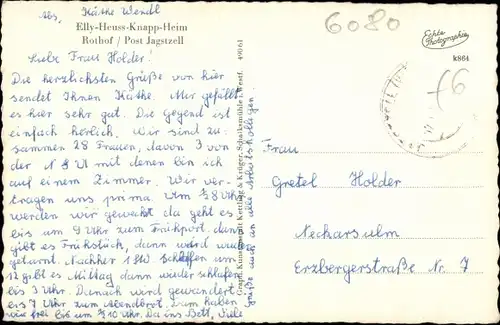 Abs. Käthe Wendl
Elly-Heuss-Knapp-Heim
Rothof / Post Jagstzell
Liebe Frau Holder!
Die herzlichsten Grüße von hier
sendet Ihnen Käthe. Mir gefällt
es hier sehr gut. Die Gegend ist
einfach herlich. Wir sind zu-
sammen 28 Frauen, davon 3 von
der NSU mit denen bin ich
auf einem Zimmer. Wir ver-
tragen uns prima. Um ½8 Uhr
werden wir geweckt da geht es
bis um 9 Uhr zum Frühport, dann
gibt es Frühstück, dann wird
geturnt. Nachher 1 Std schlafen um
12 gibt es Mittag dann wieder schlafen
bis 3 Uhr. Danach wird gewandert
bis 7 Uhr zum Abendbrot. Dann haben
wir frei bis um ½10 Uhr. Da ins Bett. Viele
Grüße auch an alle Arbeitskollegen.
49061
Graph. Kunstanstalt Kettling & Krüger, Schalksmühle i. Westf.
6080
Echte
Photographie
k864
Frau
Gretel Holder
Neckarsulm
Erzbergerstraße Nr. 7